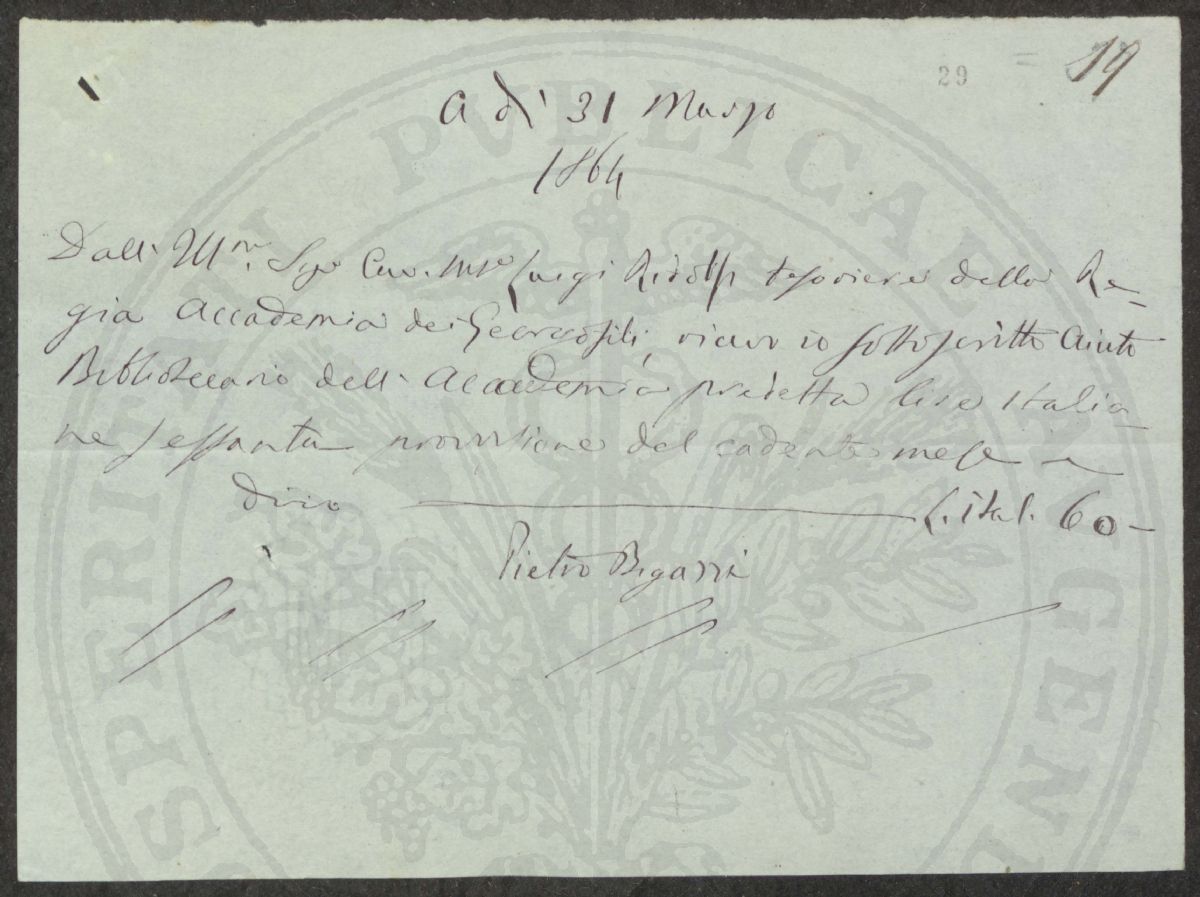 29
19
A dì 31 Marzo
1864
Dall' Ill.mo Sigr Cav. Luigi Ridolfi tesoriere della Re-
gia Accademia dei Georgofili, ricevo io sottoscritto Aiuto
Bibliotecario dell' Accademia predetta lire Italia-
ne sessanta provvisione del cadente mese e
dico L. Ital. 60-
Pietro Bigazzi
PROSPERITATI PVBLICAE AVGENDAE